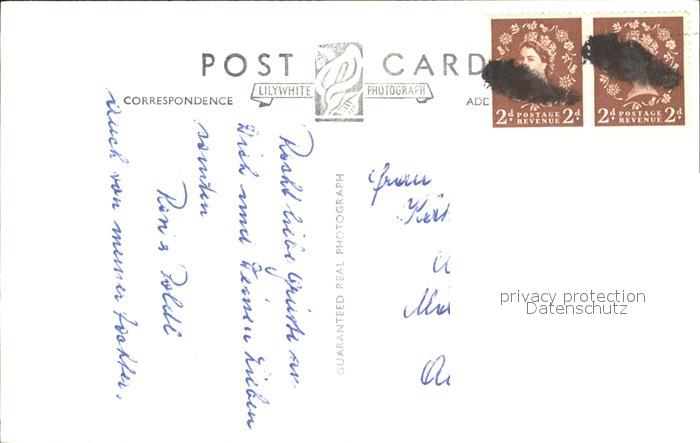 POST CARD
LILYWHITE PHOTOGRAPH
CORRESPONDENCE
ADD
2d POSTAGE REVENUE 2d
2d POSTAGE REVENUE 2d
Recht liebe Grüße an
Dich und Deinen Lieben
senden
Poldi
Auch von meiner Tochter.
GUARANTEED REAL PHOTOGRAPH
Frau
privacy protection
Datenschutz